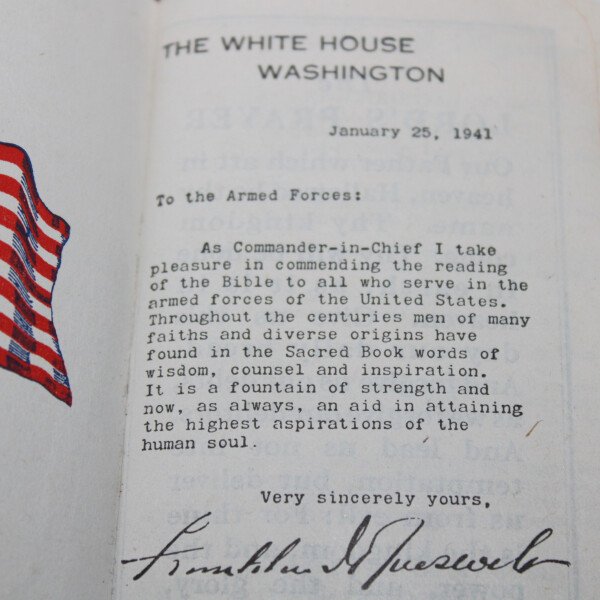 THE WHITE HOUSE
WASHINGTON
January 25, 1941
To the Armed Forces:
As Commander-in-Chief I take
pleasure in commending the reading
of the Bible to all who serve in the
armed forces of the United States.
Throughout the centuries men of many
faiths and diverse origins have
found in the Sacred Book words of
wisdom, counsel and inspiration.
It is a fountain of strength and
now, as always, an aid in attaining
the highest aspirations of the
human soul.
Very sincerely yours,
Franklin D Roosevelt